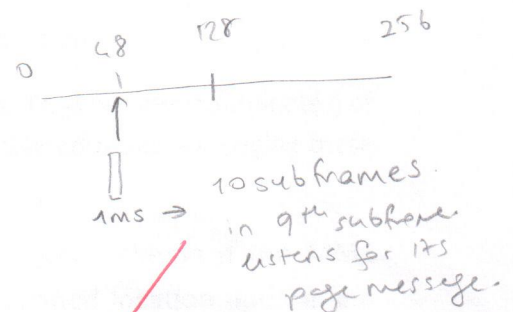 0 48 128 256
10 subframes.
1ms → in 9th subframe
listens for its
page message.